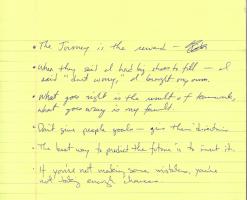 • The Journey is the reward —
• When they said I had big shoes to fill — I
said "don't worry," I brought my own.
• What goes right is the result of teamwork,
what goes wrong is my fault.
• Don't give people goals — give them direction
• The best way to predict the future is to invent it.
• If you're not making some mistakes, you're
not taking enough chances.